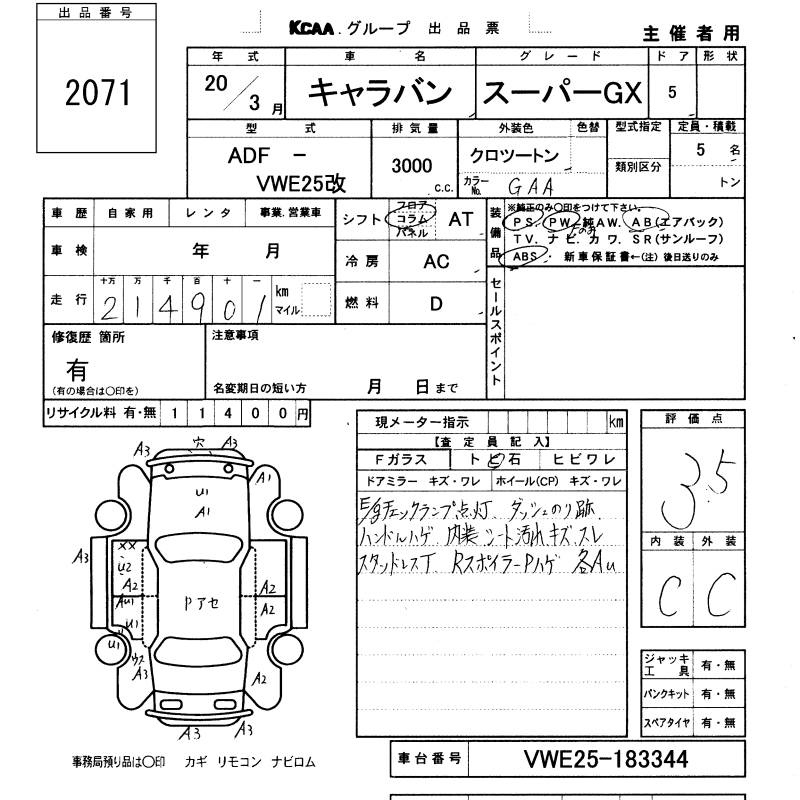 出品番号
2071
KCAA グループ 出品票
主催者用
年式 車名 グレード ドア 形状
20/3月 キャラバン スーパーGX 5
型式 排気量 外装色 色替 型式指定 定員・積載
ADF - VWE25改
3000 c.c.
クロツートン
カラーNo. GAA
類別区分
5 名
トン
車歴 自家用 レンタ 事業.営業車
車検 年 月
走行 十万 万 千 百 十 一
214901 km マイル
シフト フロア コラム パネル AT
冷房 AC
燃料 D
装備品
※純正のみ〇印をつけて下さい。
PS. PW. 純AW. AB(エアバック)
TV. ナビ. カワ. SR(サンルーフ)
ABS . 新車保証書←(注)後日送りのみ
セールスポイント
修復歴 箇所
有
(有の場合は〇印を)
注意事項
名変期日の短い方 月 日まで
リサイクル料 有・無 11400円
現メーター指示 km
【査定員記入】
Fガラス トビ石 ヒビワレ
ドアミラー キズ・ワレ ホイール(CP) キズ・ワレ
E/gチェックランプ点灯. ダッシュのり跡.
ハンドルハゲ. 内装 シート汚れ キズ.スレ
スタッドレスT. RスポイラーPハゲ 各Au
評価点
3.5
内装 外装
C C
ジャッキ 工具 有・無
パンクキット 有・無
スペアタイヤ 有・無
A3 穴 A3
U1
A1
A1
A3
XX
U2
A2
AU1
U1
U1
Pアセ
A2
A2
A3
A2
A3 A3
事務局預り品は〇印 カギ リモコン ナビロム
車台番号 VWE25-183344